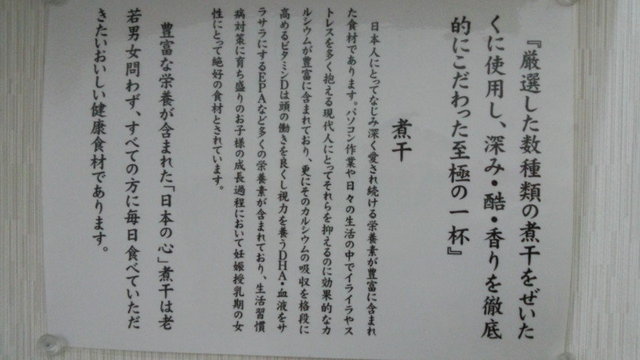 『厳選した数種類の煮干をぜいた
くに使用し、深み・酷・香りを徹底
的にこだわった至極の一杯』
煮干
日本人にとってなじみ深く愛され続ける栄養素が豊富に含まれ
た食材であります。パソコン作業や日々の生活の中でイライラやス
トレスを多く抱える現代人にとってそれらを抑えるのに効果的なカ
ルシウムが豊富に含まれており、更にそのカルシウムの吸収を格段に
高めるビタミンDは頭の働きを良くし視力を養うDHA・血液をサ
ラサラにするEPAなど多くの栄養素が含まれており、生活習慣
病対策に育ち盛りのお子様の成長過程において妊娠授乳期の女
性にとって絶好の食材とされています。
豊富な栄養が含まれた「日本の心」煮干は老
若男女問わず、すべての方に毎日食べていただ
きたいおいしい健康食材であります。